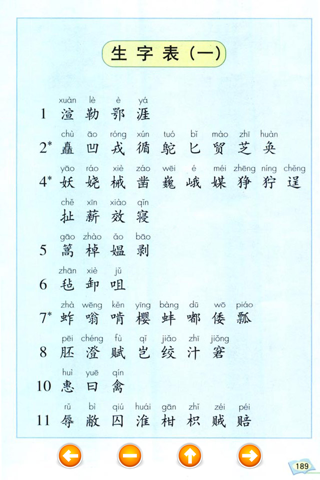 生字表(一)
xuàn lè è yá
1 渲 勒 鄂 涯
chù āo róng xún tuó bǐ mào zhī huàn
2* 矗 凹 戎 循 鸵 匕 贸 芝 奂
yāo ráo xiè záo wēi é méi zhēng níng chěng
4* 妖 娆 械 凿 巍 峨 媒 狰 狞 逞
chě xīn xiào qǐn
扯 薪 效 寝
gāo zhào ǎo bāo
5 篙 棹 媪 剥
zhān xiè jǔ
6 毡 卸 咀
zhà wēng kěn yīng bàng dū wō piáo
7* 蚱 嗡 啃 樱 蚌 嘟 倭 瓢
pēi chéng fù qǐ jiǎo zhī jiǒng
8 胚 澄 赋 岂 绞 汁 窘
huì yuē qín
10 惠 曰 禽
rǔ bì qiú huái gān zhǐ zéi péi
11 辱 敝 囚 淮 柑 枳 贼 赔
189